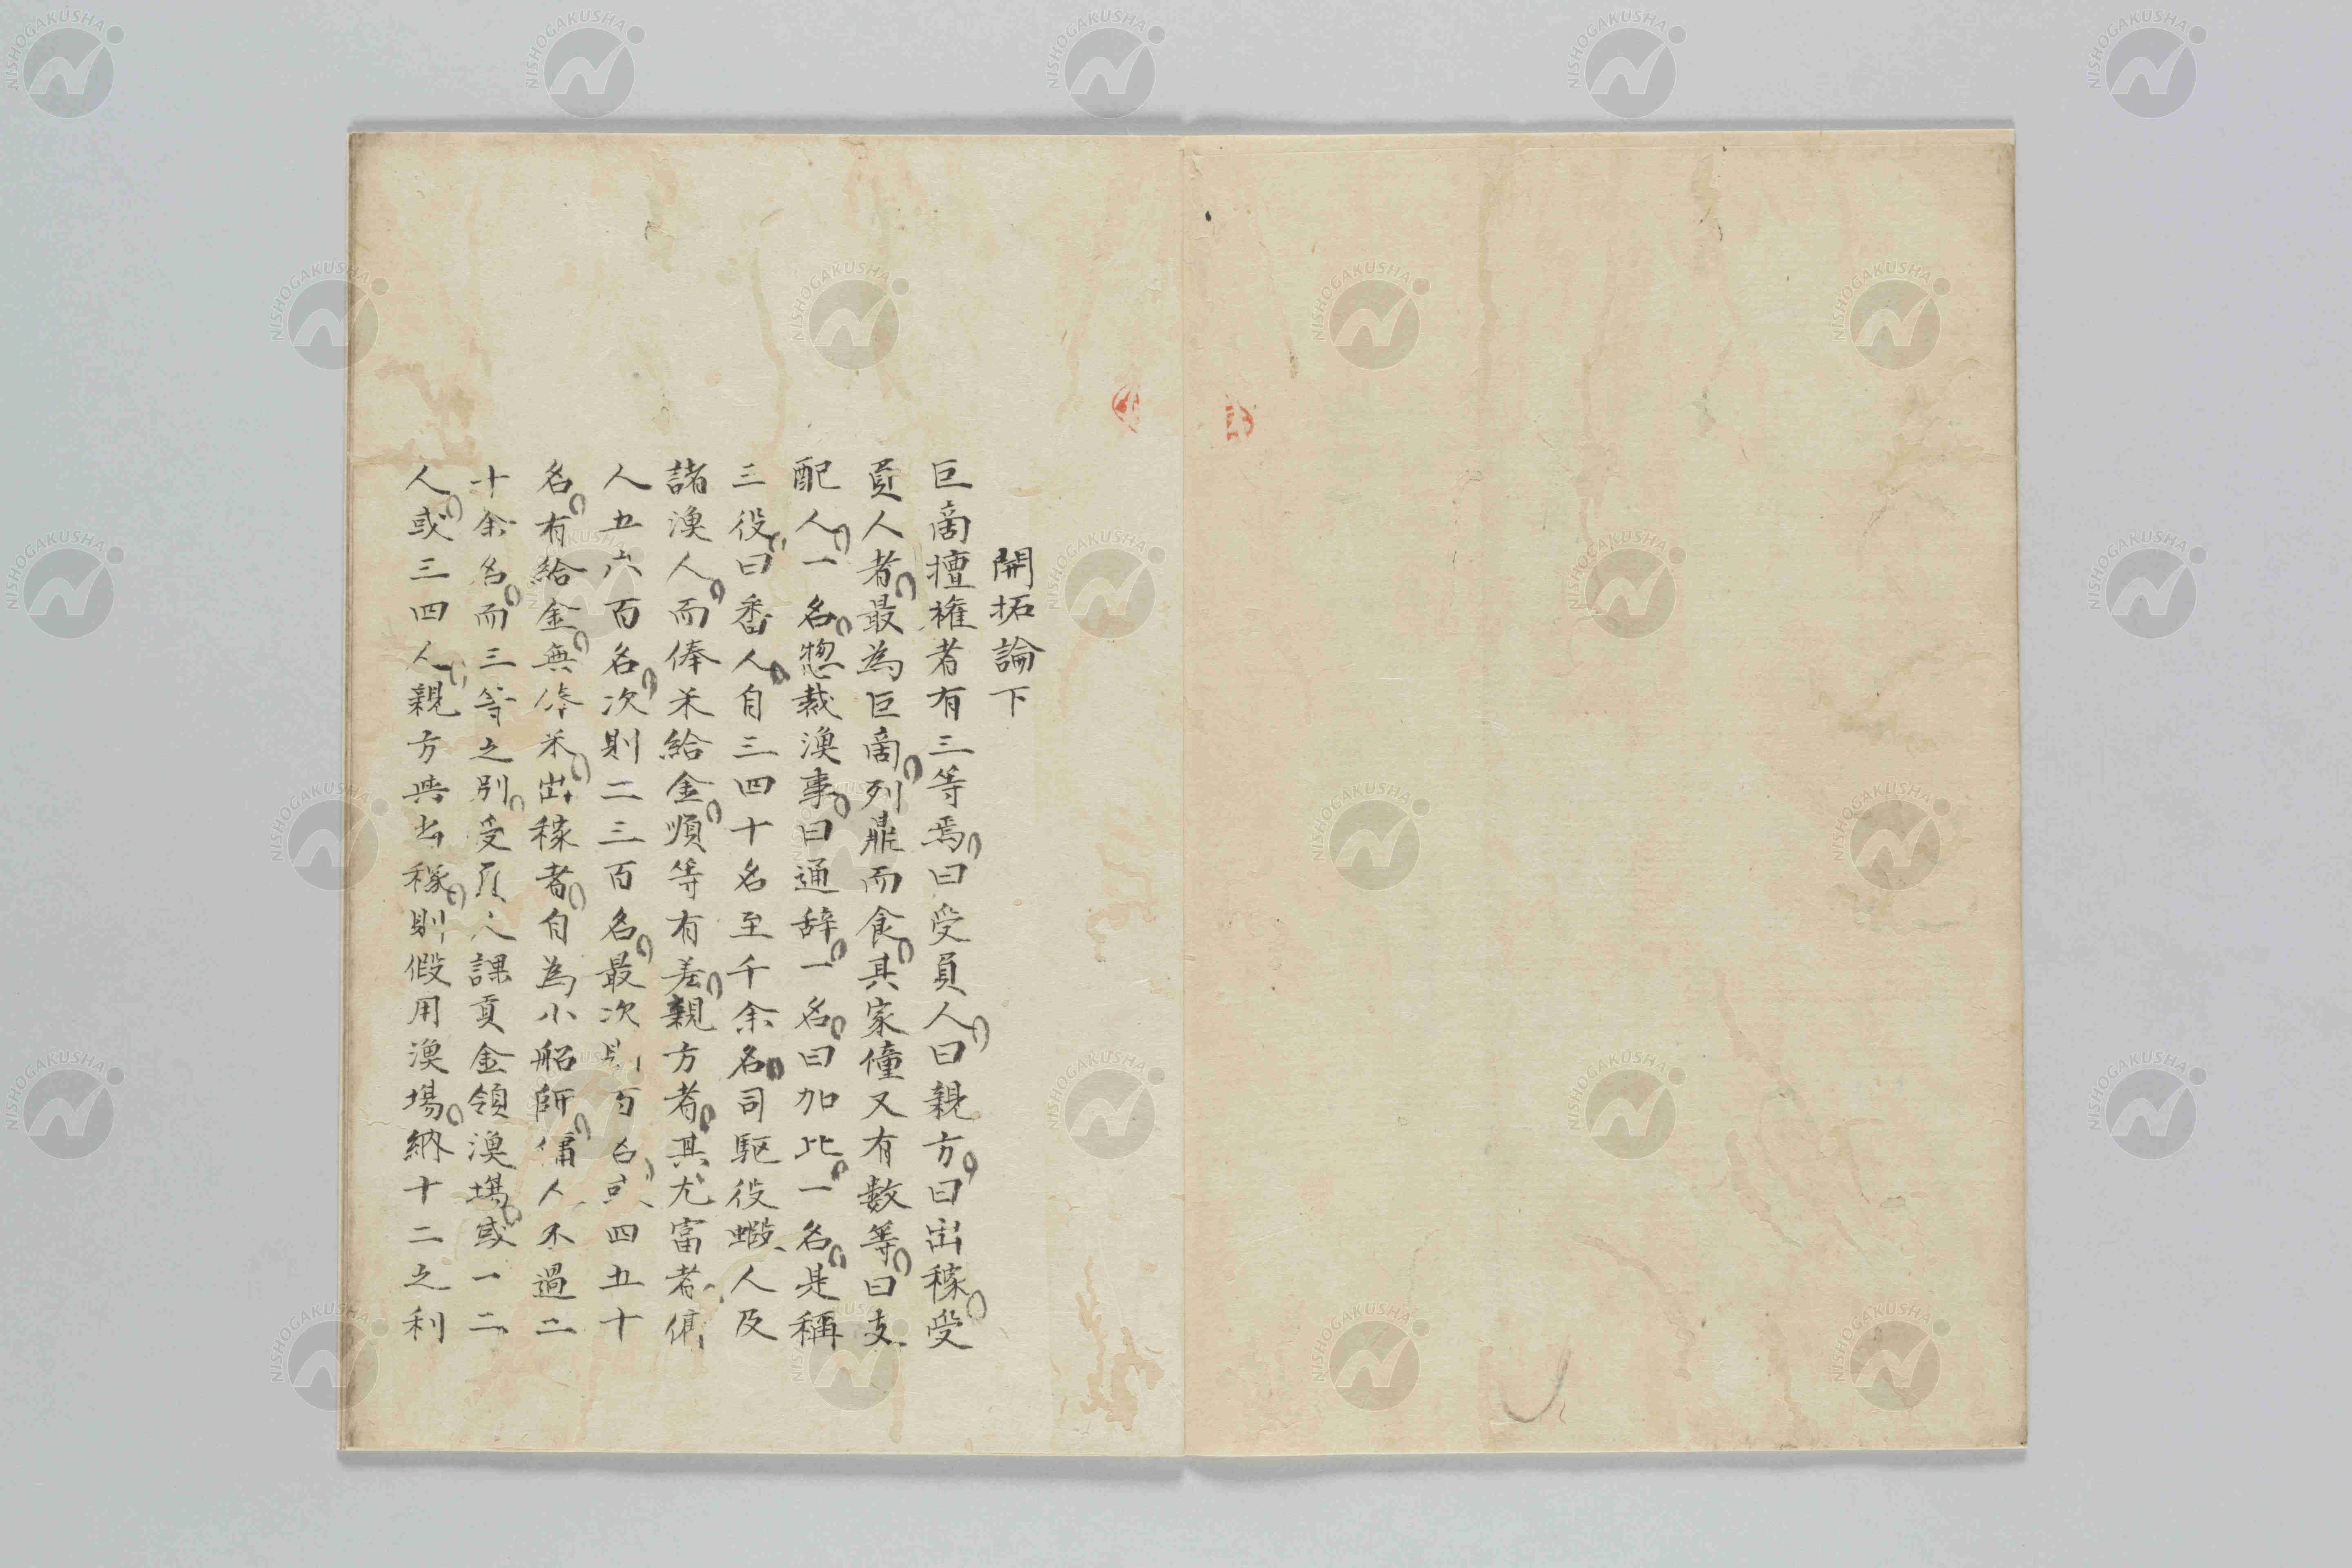 開拓論下
巨商擅權者有三等焉曰受員人曰親方曰出稼受
員人者最為巨商列鼎而食其家僮又有數等曰支
配人一名惣裁漁事曰通辞一名曰加比一名是稱
三役曰番人自三四十名至千余名司駆役蝦人及
諸漁人而俸米給金順等有差親方者其尤富者傭
人五六百名次則二三百名最次則百名或四五十
名有給金無俸米出稼者自為小船師傭人不過二
十余名而三等之別受員人課貢金領漁場或一二
人或三四人親方與出稼則假用漁場納十二之利
NISHOGAKUSHA